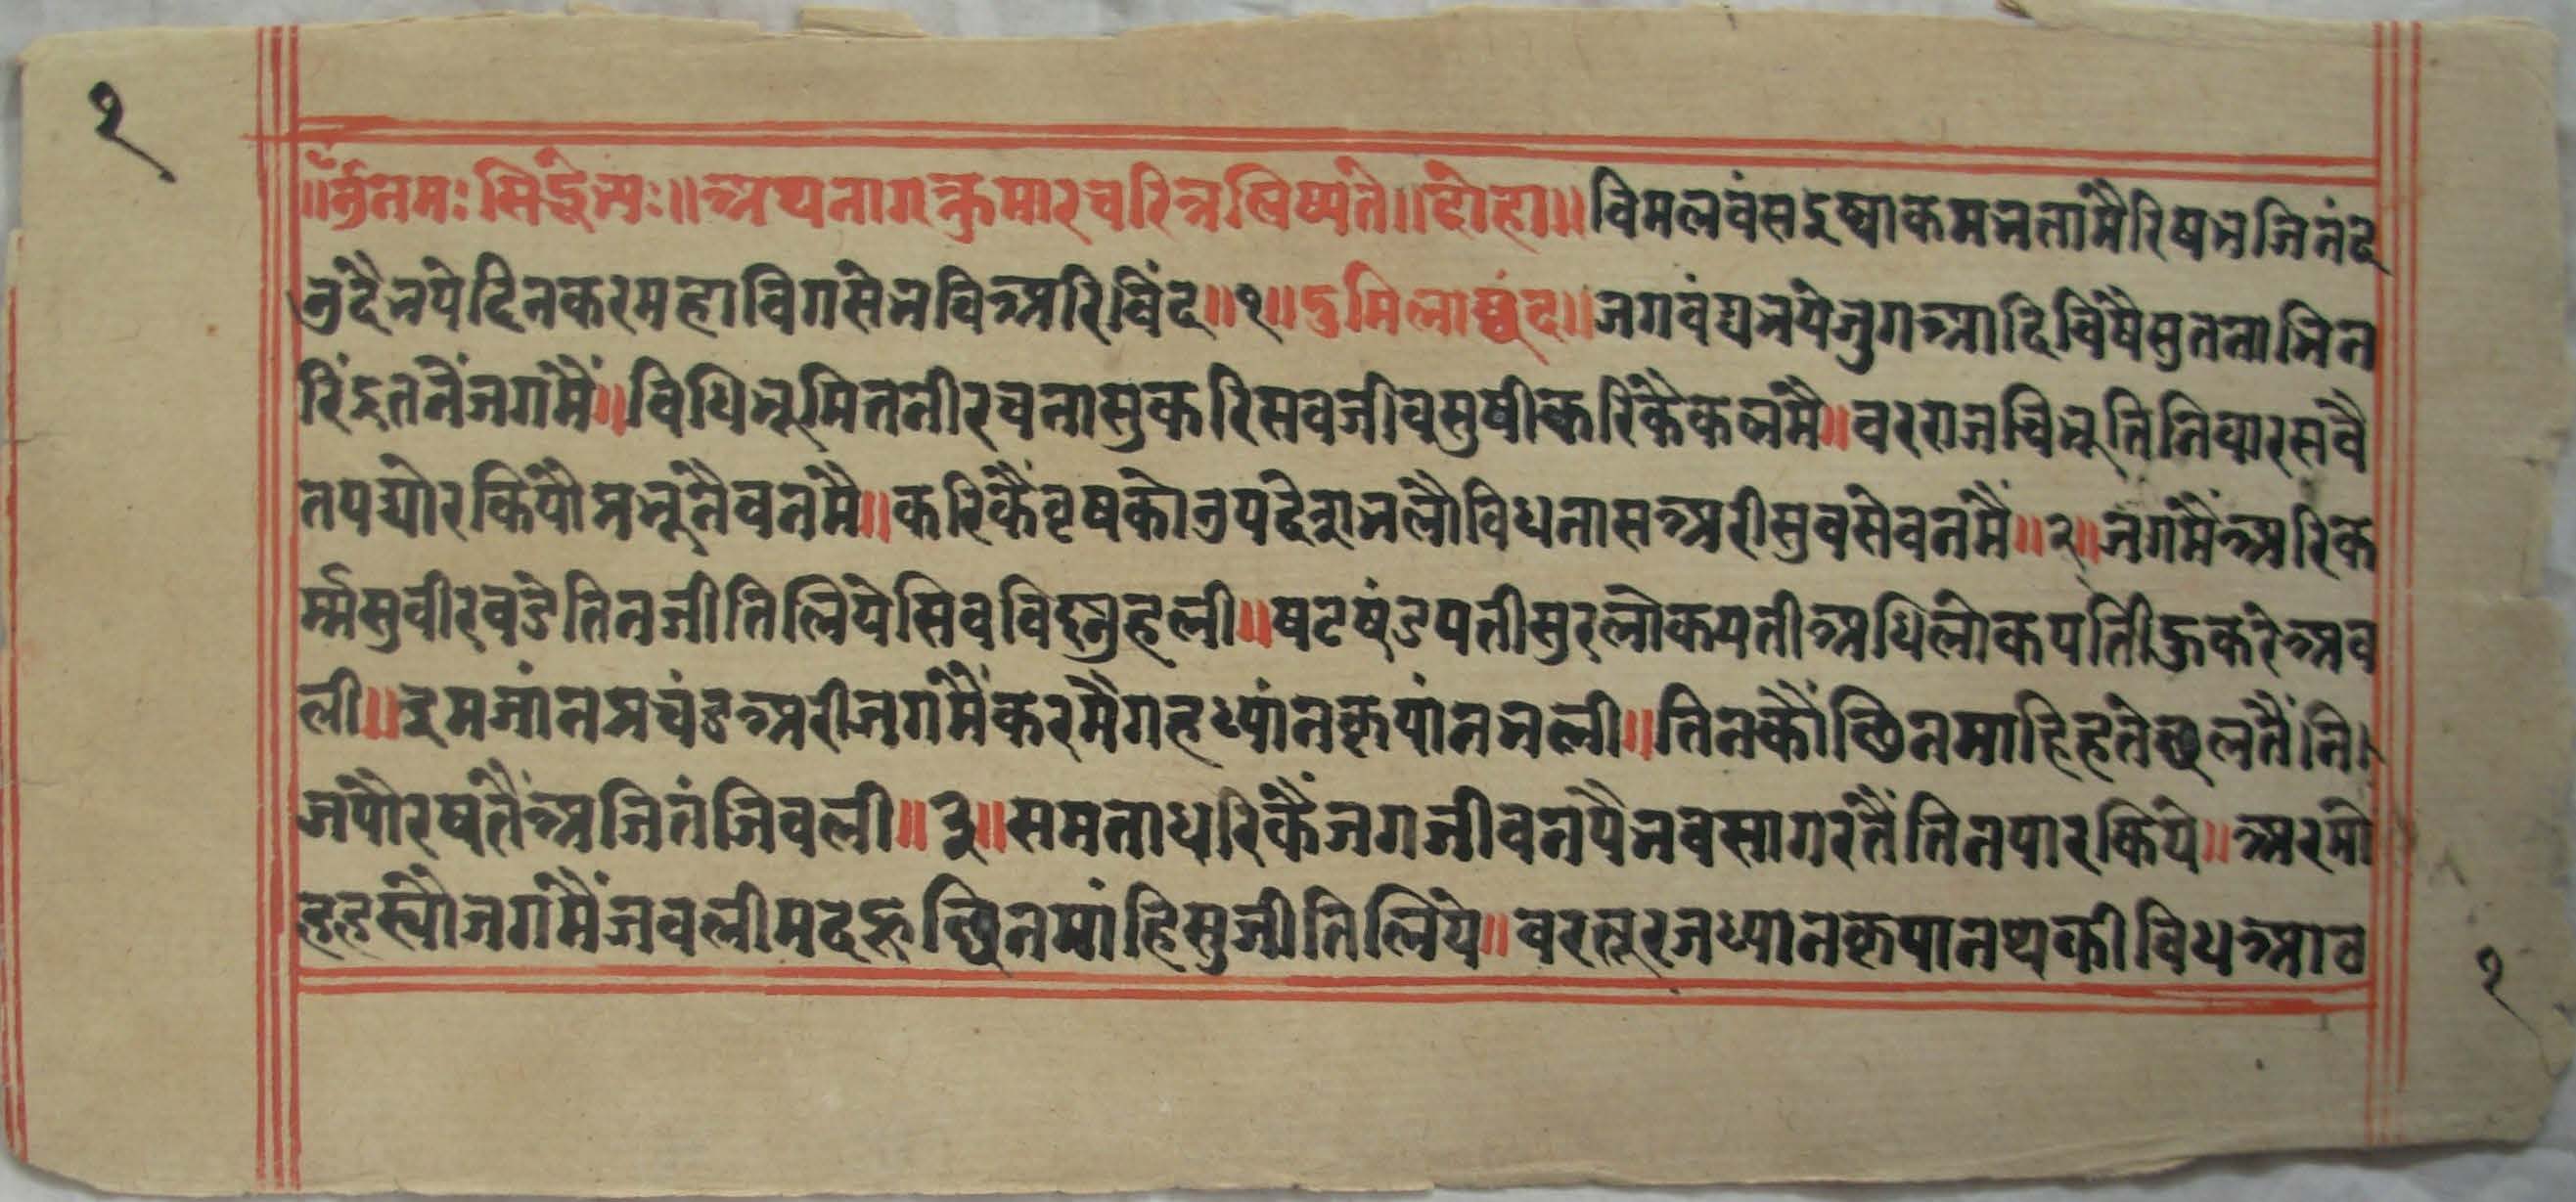 १
॥ॐनमः सिद्धेभ्यः॥अथनागकुमारचरित्रलिष्यते॥दोहा॥विमलवंसइष्याकमभतामैरिषभजिनंद
उदैभयेदिनकरमहाविगसेभविअरिविंद॥१॥दुमिलाछंद॥जगवंद्यभयेजुगआदिविषैसुतनाभिन
रिंदतनैंजगमैं॥विधिभूमितनीरचनासुकरिसवजीवसुषीकरिकैकलमै॥वरराजविभूतिनिवारसवै
तपघोरकियौप्रभूनैवनमै॥करिकैंवृषकोउपदेशभलौविधनासअरीसुवसेवनमैं॥२॥जगमैंअरिक
र्म्मसुवीरवडेतिनजीतिलियेसिवविटुहली॥षटषंडपतीसुरलोकपतीअधिलोकपतिीजुकरेअव
ली॥इमजांनप्रचंडअरीजगमैंकरमैगहध्यांनकृपांनभली॥तिनकौंछिनमाहिहतेछलतैंनि।
जपौरषतैंअजितंजिवली॥३॥समताधरिकैंजगजीवनपैभवसागरतैंतिनपारकिये॥अरमो
हहस्यौजगमैंजवलीमदकछिनमांहिसुजीतिलिये॥वरसूरजध्यानकृपानथकीविधआव
१